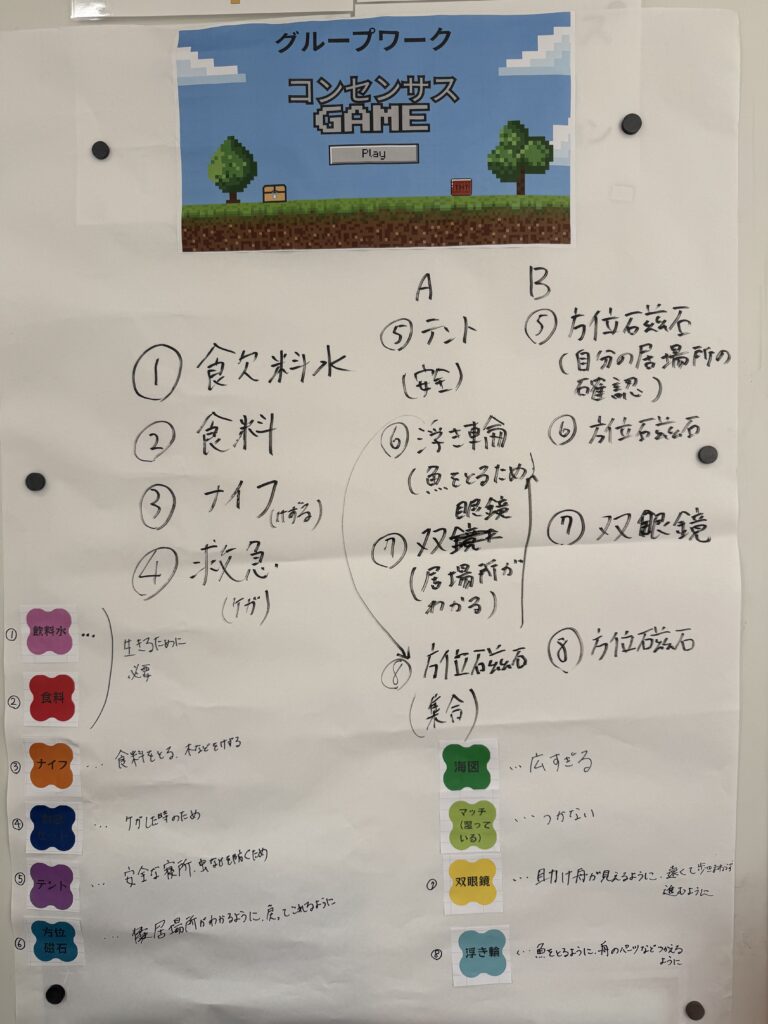 グループワーク
コンセンサス
GAME
Play
TNT
A
B
① 食飲料水
② 食料
③ ナイフ(けずる)
④ 救急
(ケガ)
⑤ テント
(安全)
⑥ 浮き輪
(魚をとるため)
眼鏡
⑦ 双
(居場所が
わかる)
⑧ 方位石磁石
(集合)
⑤ 方位石磁石
(自分の居場所の
確認)
⑥ 方位石磁石
⑦ 双眼鏡
⑧ 方位石磁石
① 飲料水 …
② 食料
生きるために
必要
③ ナイフ … 食料をとる、木などをけずる
④ … ケガした時のため
⑤ テント … 安全な寝所、虫などを防ぐため
⑥ 方位
磁石 … 居場所がわかるように、戻ってこれるように
海図 … 広すぎる
マッチ
(湿って
いる) … つかない
⑦ 双眼鏡 … 助け舟が見えるように、遠くて
進むように
⑧ 浮き輪 … 魚をとるように、舟のパーツなどつかえる
ように